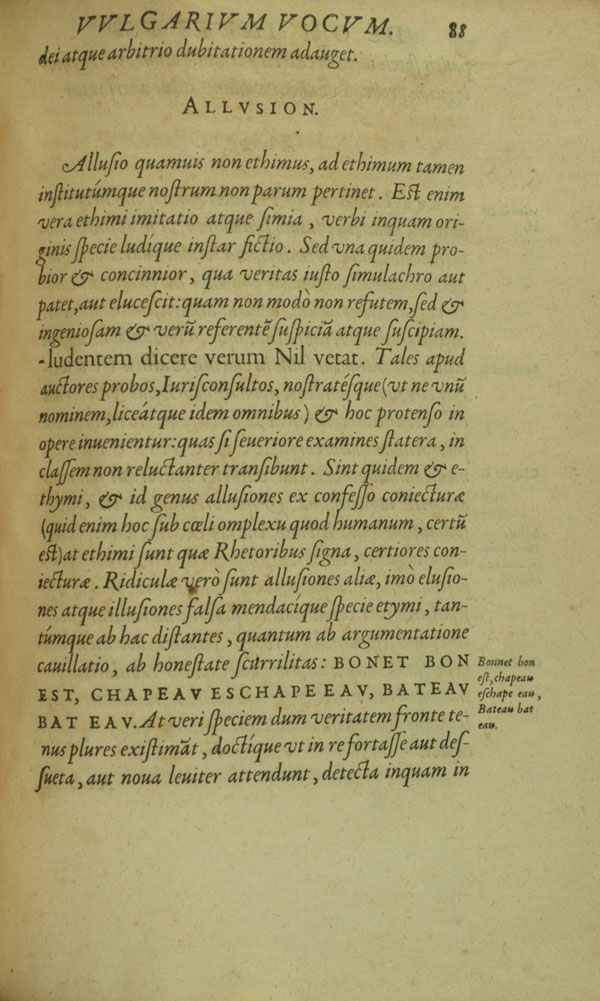 VVLGARIVM VOCVM. 88
dei atque arbitrio dubitationem adauget.
ALLVSION.
Allusio quamuis non ethimus, ad ethimum tamen
institutúmque nostrum non parum pertinet. Est enim
vera ethimi imitatio atque simia, verbi inquam ori-
ginis specie ludíque instar fictio. Sed vna quidem pro-
bior & concinnior, qua veritas iusto simulachro aut
patet, aut elucescit: quam non modò non refutem, sed &
ingeniosam & verũ referentẽ suspiciã atque suscipiam.
-ludentem dicere verum Nil vetat. Tales apud
auctores probos, Iurisconsultos, nostratésque (vt ne vnũ
nominem, liceátque idem omnibus) & hoc protenso in
opere inuenientur: quas si seueriore examines statera, in
classem non reluctanter transibunt. Sint quidem & e-
thymi, & id genus allusiones ex confesso coniecturæ
(quid enim hoc sub cœli omplexu quod humanum, certũ
est) at ethimi sunt quæ Rhetoribus signa, certiores con-
iecturæ. Ridiculæ verò sunt allusiones aliæ, imò elusio-
nes atque illusiones falsa mendacíque specie etymi, tan-
túmque ab hac distantes, quantum ab argumentatione
cauillatio, ab honestate scurrilitas: BONET BON
EST, CHAPEAV ESCHAPE EAV, BATEAV
BAT EAV. At veri speciem dum veritatem fronte te-
nus plures existimãt, doctíque vt in re fortasse aut des-
sueta, aut noua leuiter attendunt, detecta inquam in
Bonnet bon
est, chapeau
eschape eau,
Bateau bat
eau.